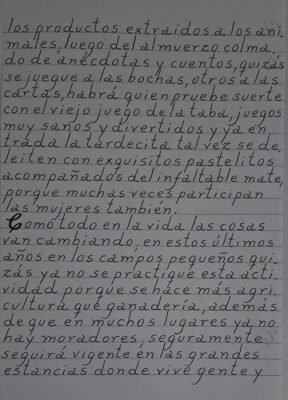 los productos extraídos a los ani
males, luego del almuerzo colma
do de anécdotas y cuentos, quizás
se juegue a las bochas, otros a las
cartas, habrá quien pruebe suerte
con el viejo juego de la taba, juegos
muy sanos y divertidos y ya en
trada la tardecita tal vez se de
leiten con exquisitos pastelitos
acompañados del infaltable mate,
porque muchas veces participan
las mujeres también.
Como todo en la vida las cosas
van cambiando, en estos últimos
años en los campos pequeños qui
zás ya no se practique esta acti
vidad porque se hace más agri
cultura que ganadería, además
de que en muchos lugares ya no
hay moradores, seguramente
seguirá vigente en las grandes
estancias donde vive gente y